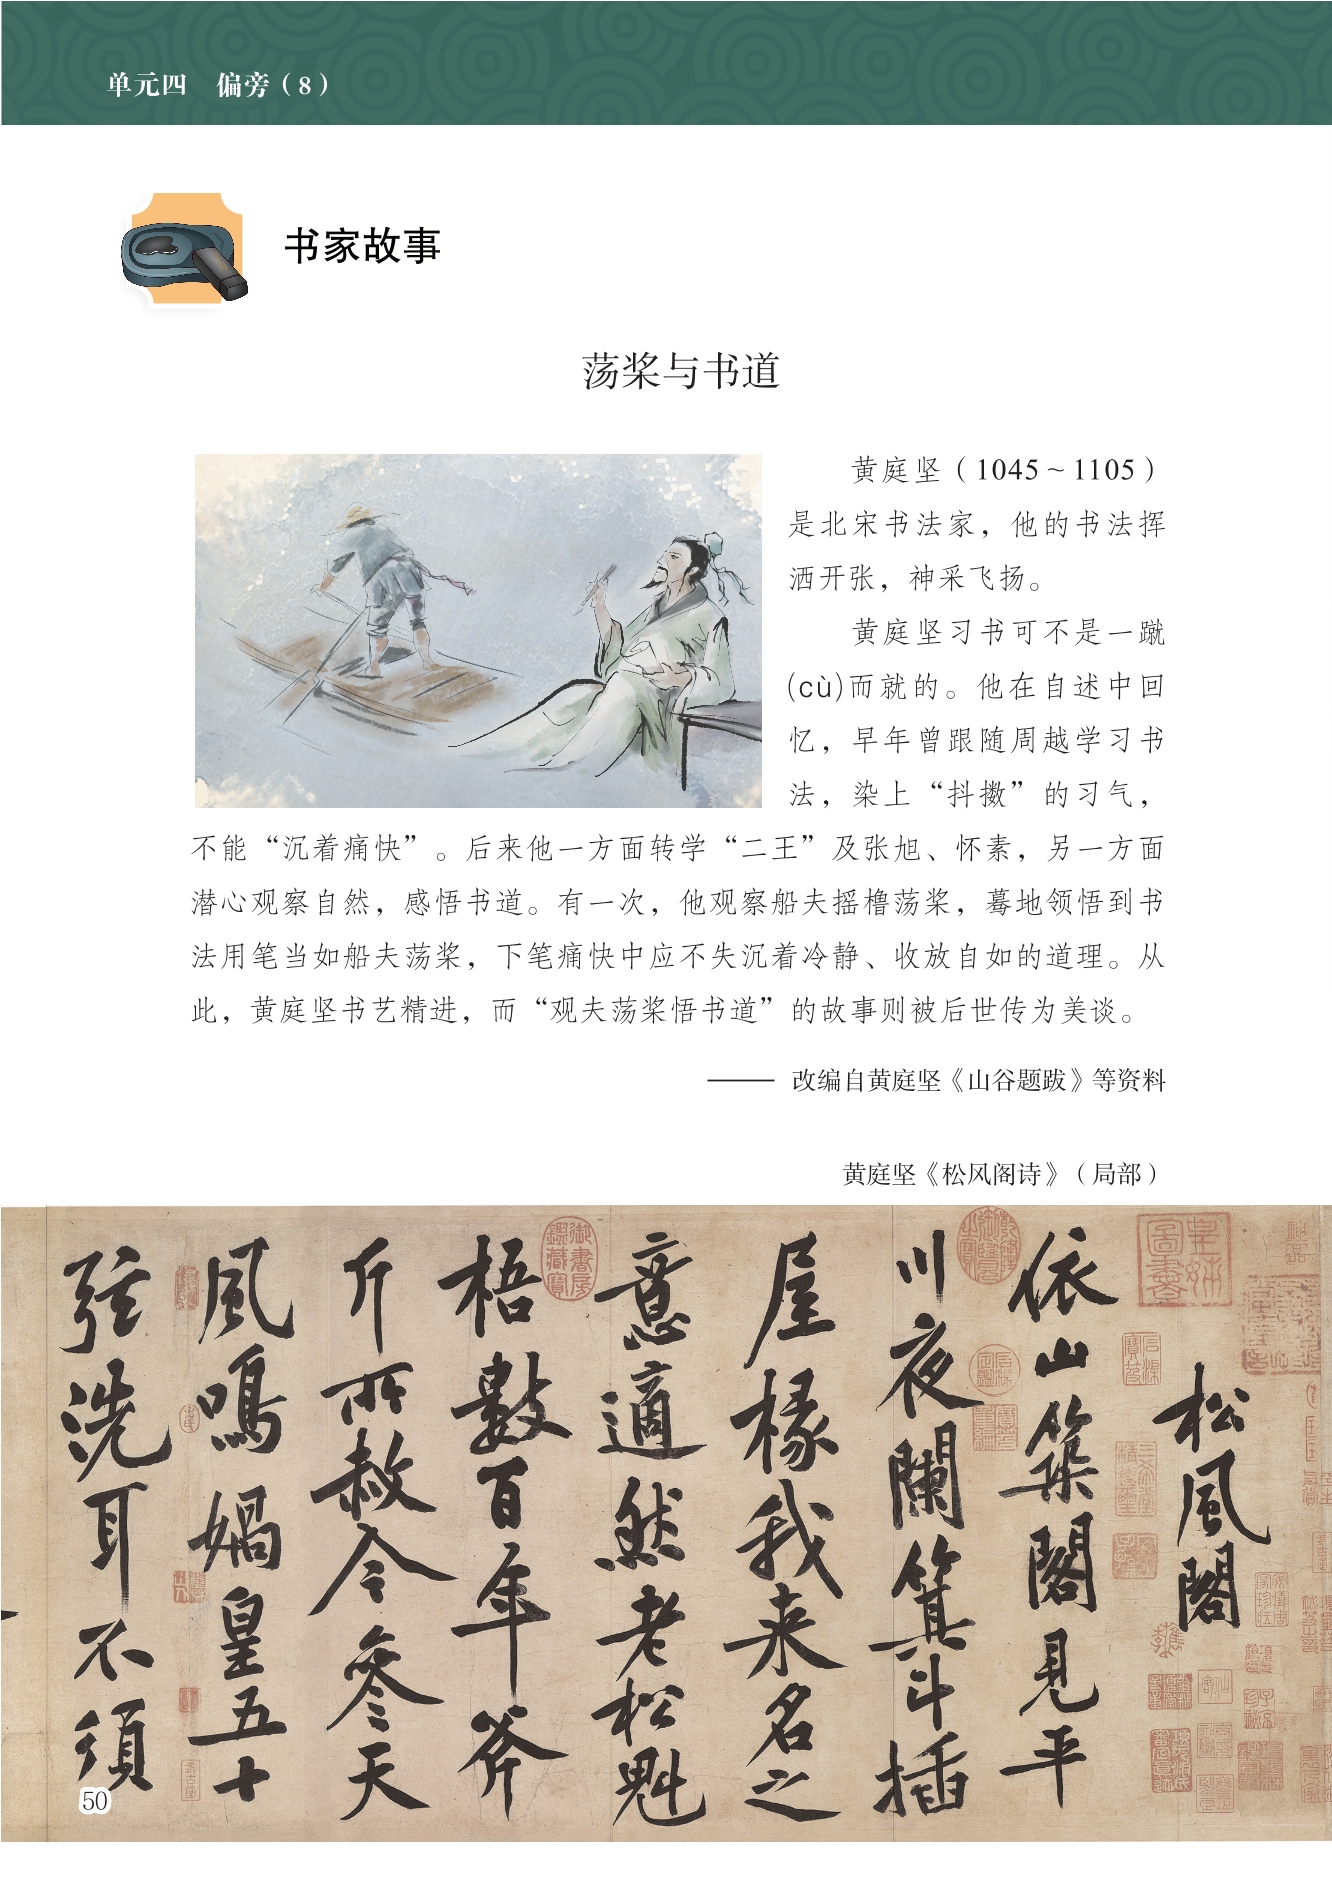 单元四　偏旁（8）
书家故事
荡桨与书道
黄庭坚（1045～1105）
是北宋书法家，他的书法挥
洒开张，神采飞扬。
黄庭坚习书可不是一蹴
(cù)而就的。他在自述中回
忆，早年曾跟随周越学习书
法，染上“抖擞”的习气，
不能“沉着痛快”。后来他一方面转学“二王”及张旭、怀素，另一方面
潜心观察自然，感悟书道。有一次，他观察船夫摇橹荡桨，蓦地领悟到书
法用笔当如船夫荡桨，下笔痛快中应不失沉着冷静、收放自如的道理。从
此，黄庭坚书艺精进，而“观夫荡桨悟书道”的故事则被后世传为美谈。
—— 改编自黄庭坚《山谷题跋》等资料
黄庭坚《松风阁诗》（局部）
松風閣
依山築閣見平
川夜闌箕斗插
屋椽我来名之
意適然老松魁
梧數百年斧
斤所赦今参天
風鳴媧皇五十
弦洗耳不須
御書房鑑藏寶
50